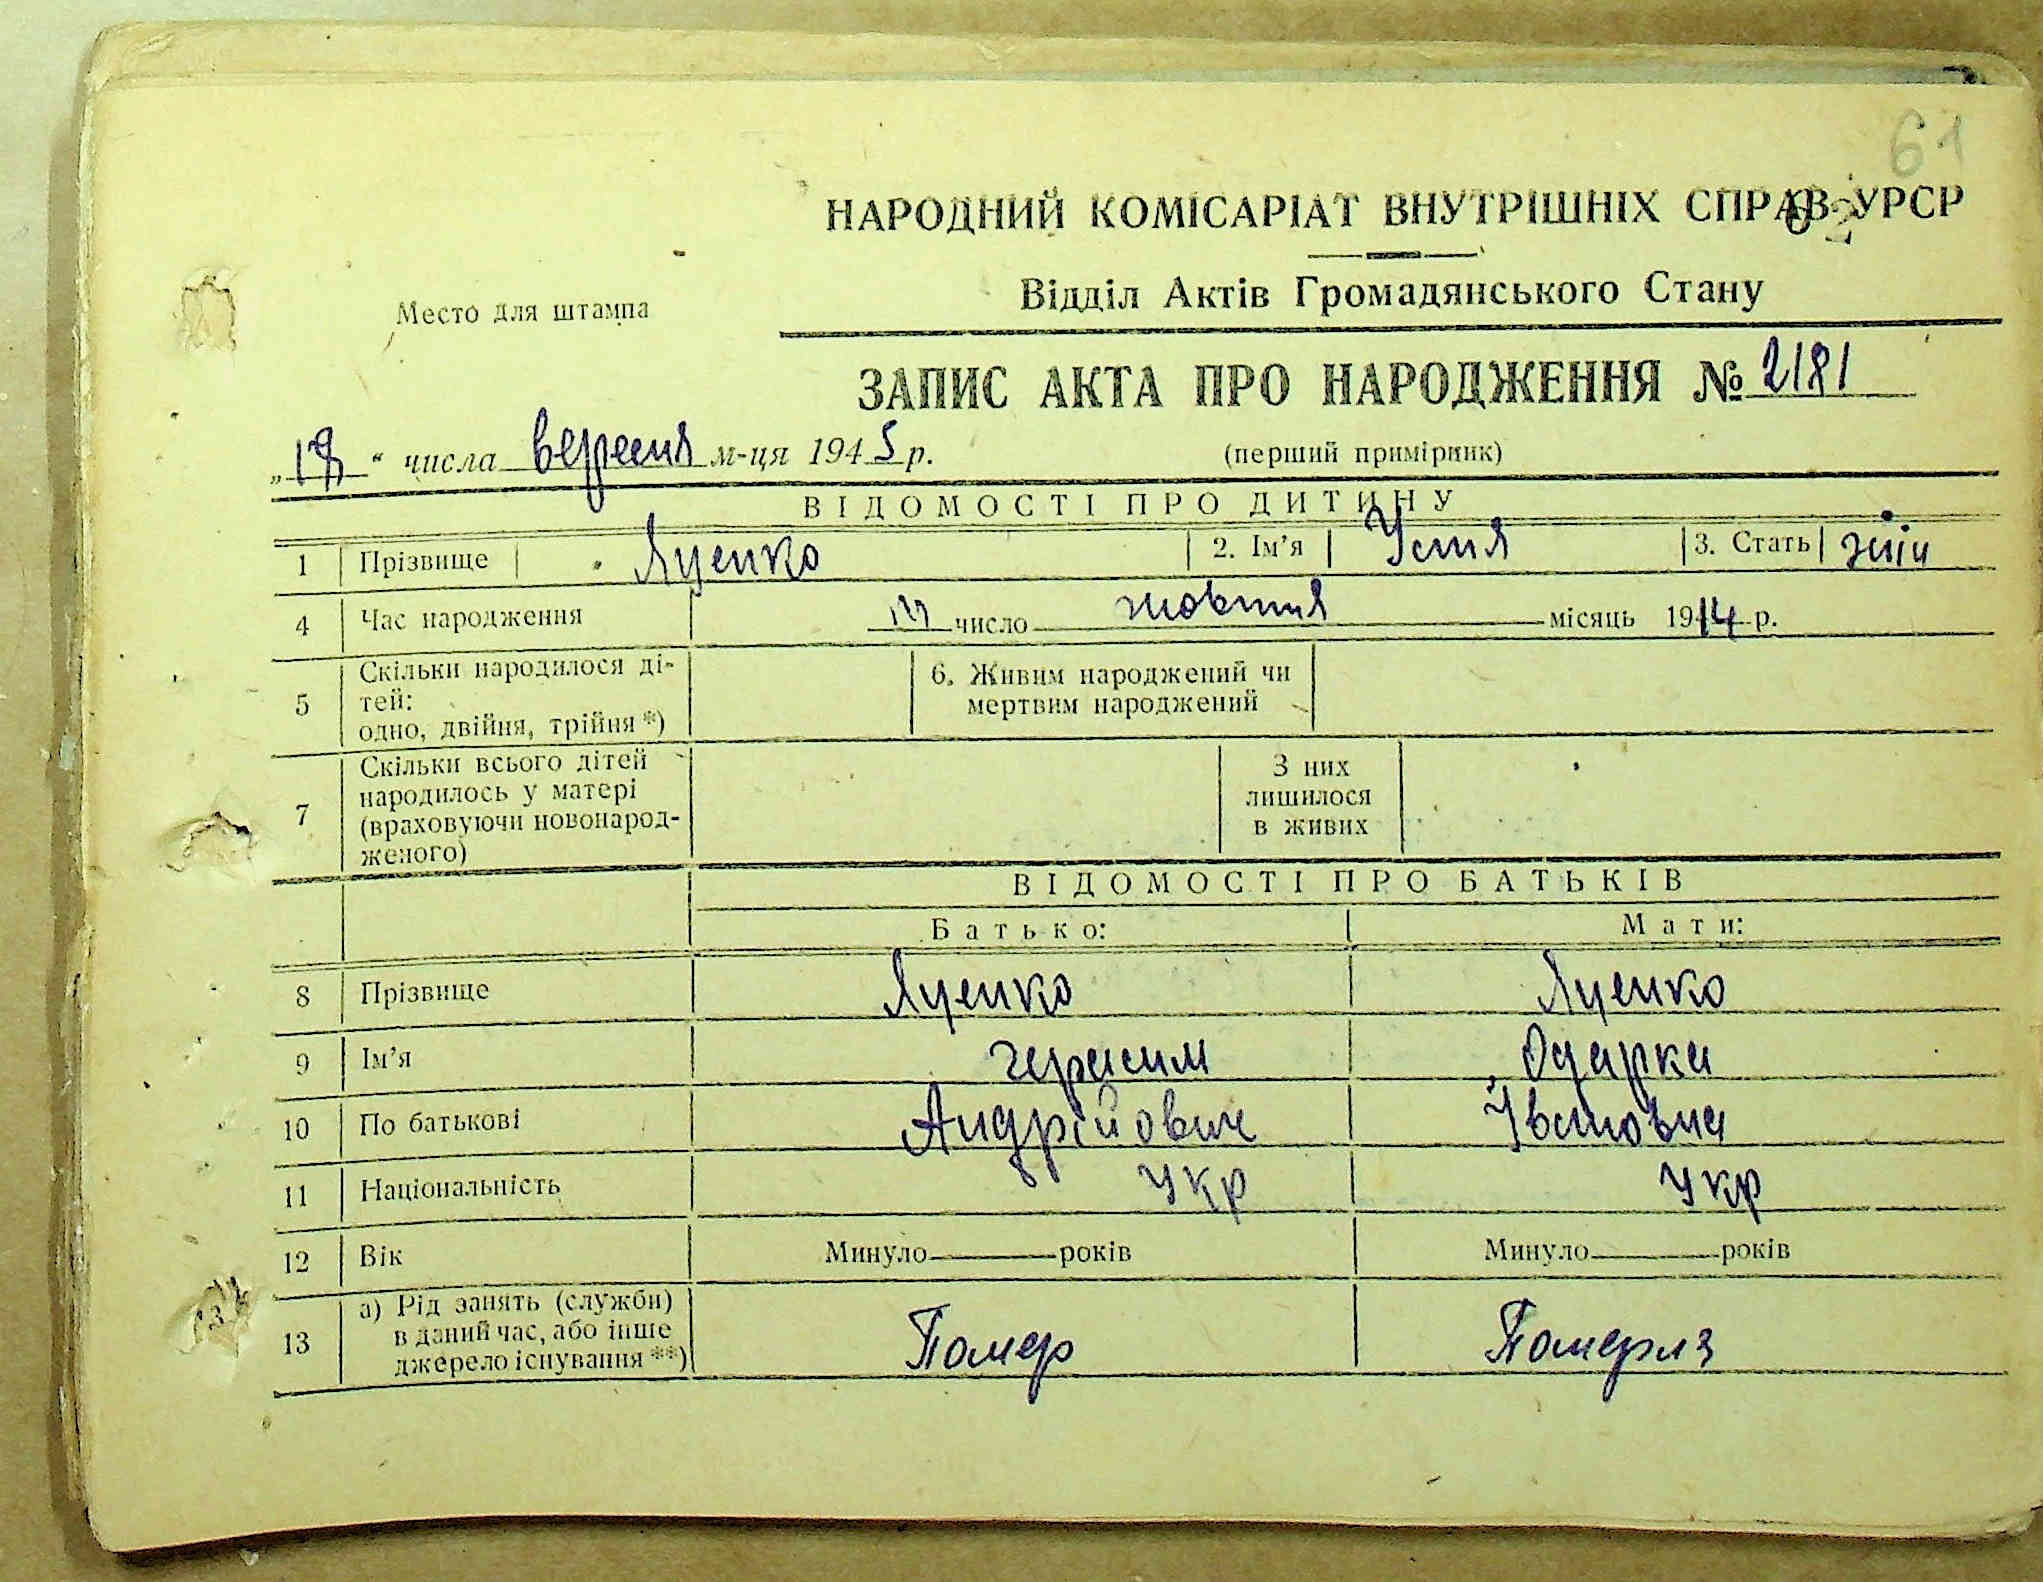 61
62
НАРОДНИЙ КОМІСАРІАТ ВНУТРІШНІХ СПРАВ УРСР
Відділ Актів Громадянського Стану
Место для штампа
ЗАПИС АКТА ПРО НАРОДЖЕННЯ № 2181
„18“ числа вересня м-ця 1945 р.
(перший примірник)
ВІДОМОСТІ ПРО ДИТИНУ
1 Прізвище Яценко 2. Ім’я Устя 3. Стать жін
4 Час народження число жовтня місяць 1914 р.
5 Скільки народилося ді-
тей:
одно, двійня, трійня *)
6. Живим народжений чи
мертвим народжений
7 Скільки всього дітей
народилось у матері
(враховуючи новонарод-
женого)
З них
лишилося
в живих
ВІДОМОСТІ ПРО БАТЬКІВ
Батько: Мати:
8 Прізвище Яценко Яценко
9 Ім’я герасим Одарка
10 По батькові Андрійович Івановна
11 Національність Укр Укр
12 Вік Минуло років Минуло років
13 а) Рід занять (служби)
в даний час, або інше
джерело існування **)
Помер Померла